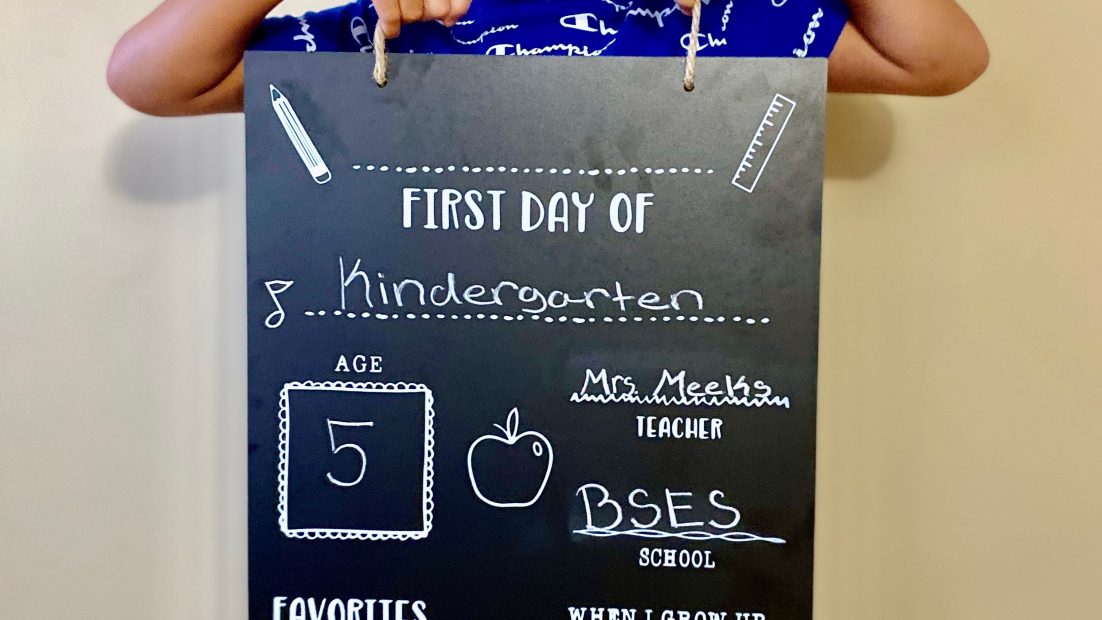 Champion
FIRST DAY OF
Kindergarten
AGE
5
Mrs. Meeks
TEACHER
BSES
SCHOOL
FAVORITES
WHEN I GROW UP